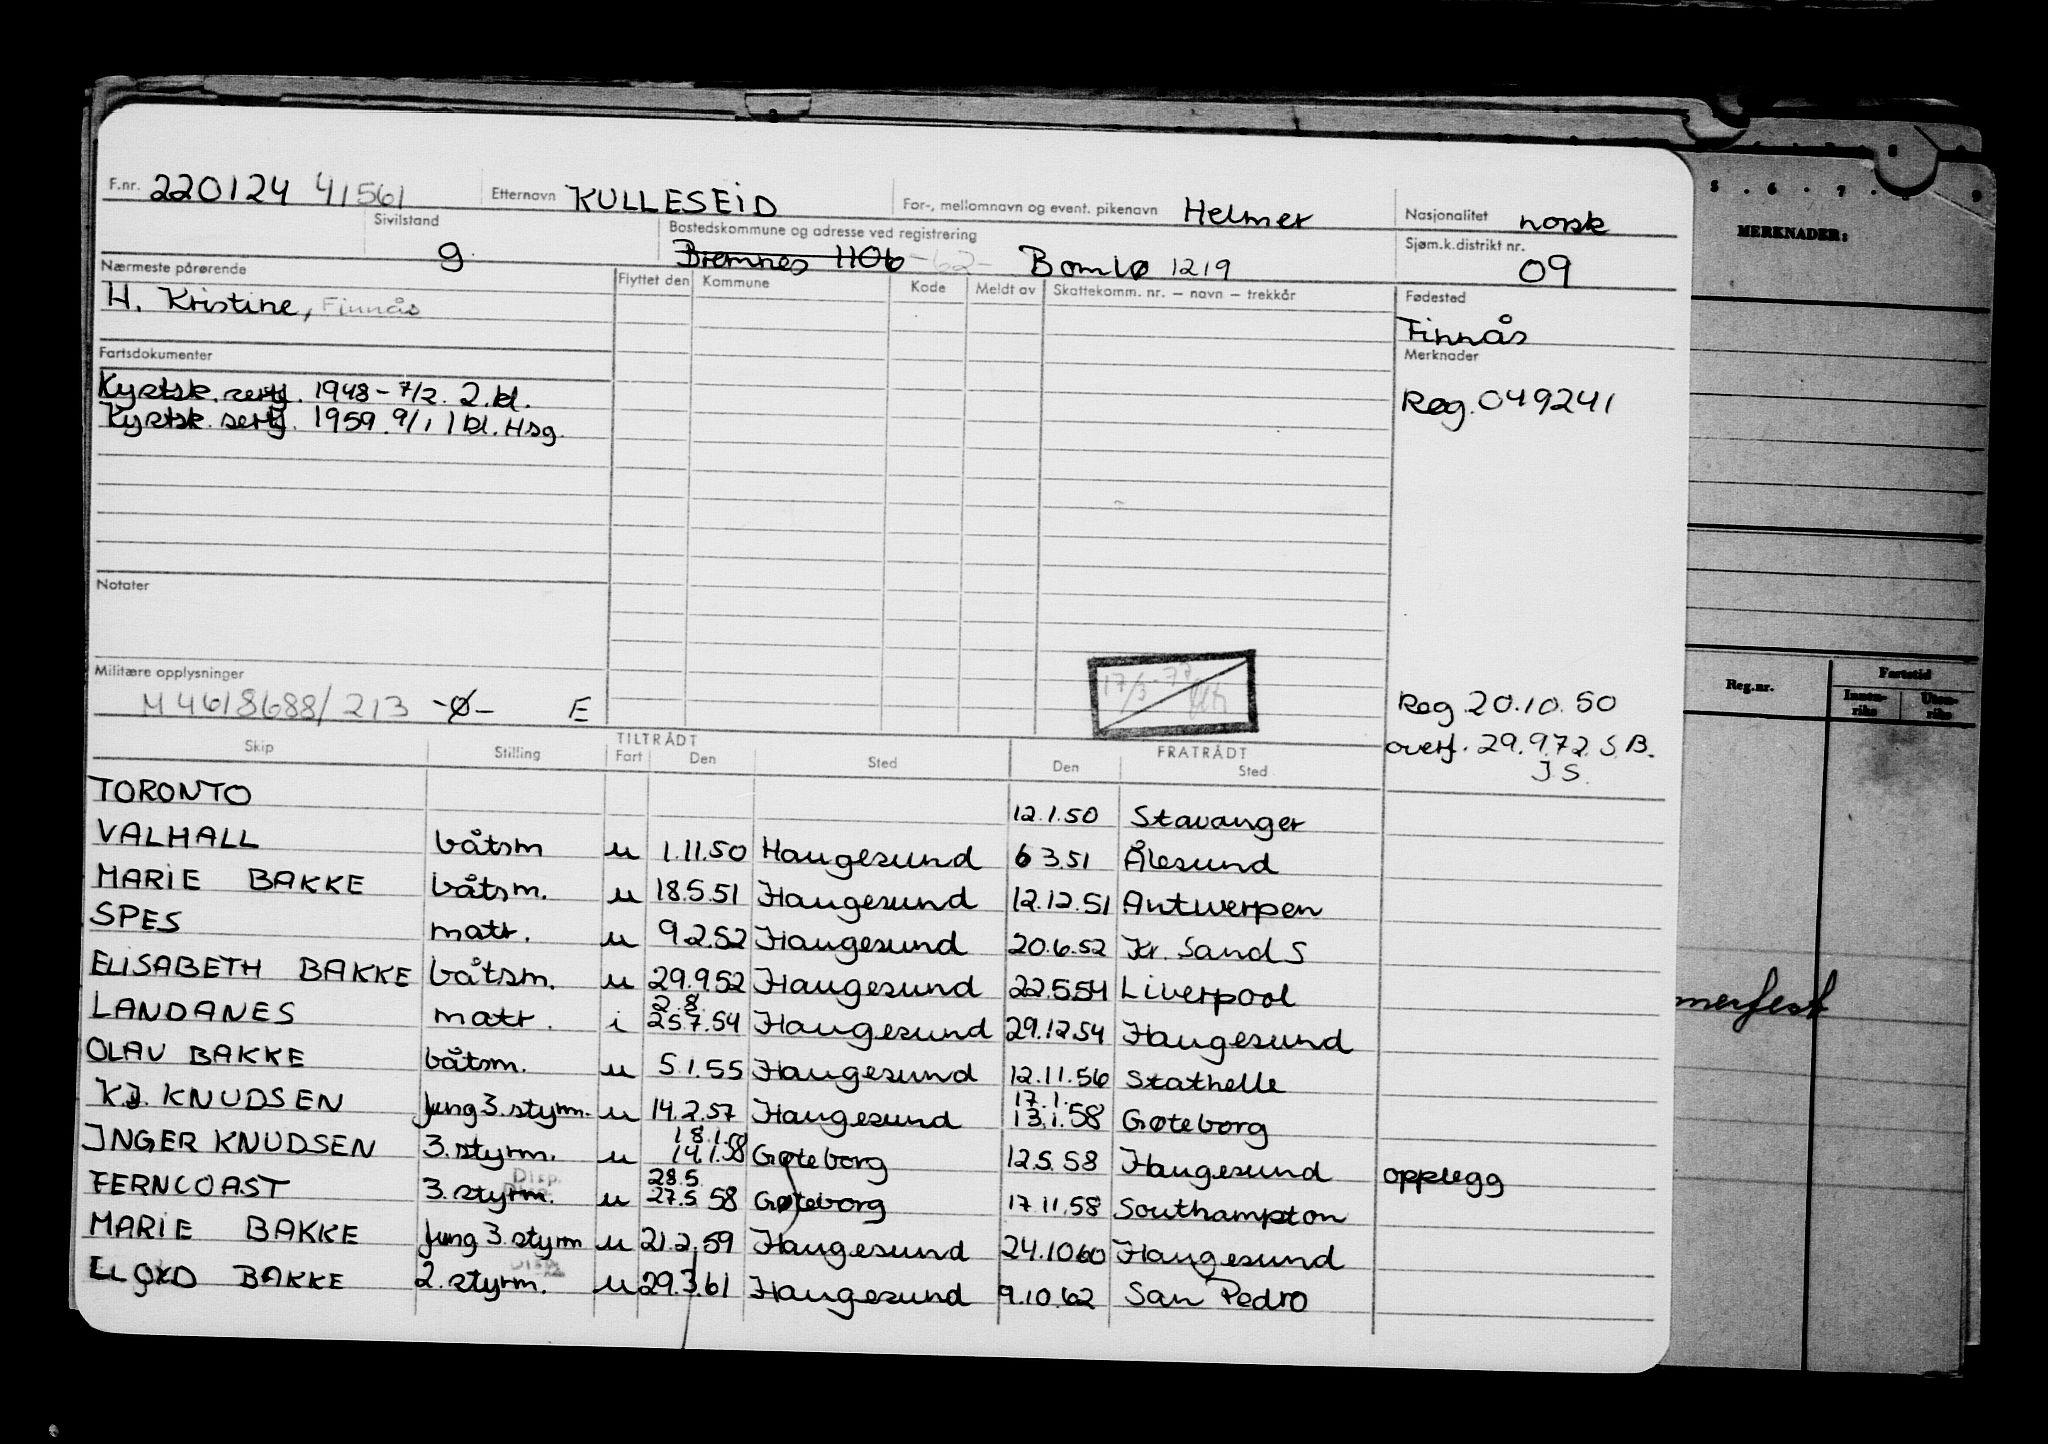 F.nr. 220124 41561 Etternavn KULLESEID For-, mellomnavn og event. pikenavn Helmer Nasjonalitet norsk
Sivilstand g Bostedskommune og adresse ved registrering Bremnes 1106 -62- Bømlo 1219 Sjøm.k.distrikt nr. 09
Nærmeste pårørende Flyttet den Kommune Kode Meldt av Skattekomm. nr. — navn — trekkår Fødested
H. Kristine, Finnås Finnås
Fartsdokumenter Merknader
Kystsk. sertf. 1948 - 7/2. 2. kl. Reg. 049241
Kystsk. sertf. 1959. 9/1 1 kl. Hsg.
Notater
17/3-77
Militære opplysninger
M 4618688/213 -Ø- E Reg 20.10.50
overf. 29.9.72. S.B.
J.S.
Skip Stilling TILTRÅDT FRATRÅDT
Fart Den Sted Den Sted
TORONTO 12.1.50 Stavanger
VALHALL båtsm u 1.11.50 Haugesund 6 3.51 Ålesund
MARIE BAKKE båtsm. u 18.5.51 Haugesund 12.12.51 Antwerpen
SPES matr. u 9.2.52 Haugesund 20.6.52 Kr. Sand S
ELISABETH BAKKE båtsm. u 29.9.52 Haugesund 22.5.54 Liverpool
2.8.
LANDANES matr. i 25.7.54 Haugesund 29.12.54 Haugesund
OLAV BAKKE båtsm. u 5.1.55 Haugesund 12.11.56 Stathelle
17.1.
K.J. KNUDSEN Jung 3. styrm. u 14.2.57 Haugesund 13.1.58 Gøteborg
18.1.58
INGER KNUDSEN 3. styrm. u 14.1.58 Gøteborg 12.5.58 Haugesund opplegg
Disp. 28.5.
FERNCOAST 3. styrm. u 27.5.58 Gøteborg 17.11.58 Southampton
MARIE BAKKE Jung 3. styrm u 21.2.59 Haugesund 24.10.60 Haugesund
Disp.
LLOYD BAKKE 2. styrm. u 29.3.61 Haugesund 9.10.62 San Pedro
5 . 6 . 7 . 8 9
MERKNADER:
Reg.nr. Fartstid
Innen-riks Uten-riks
merfest